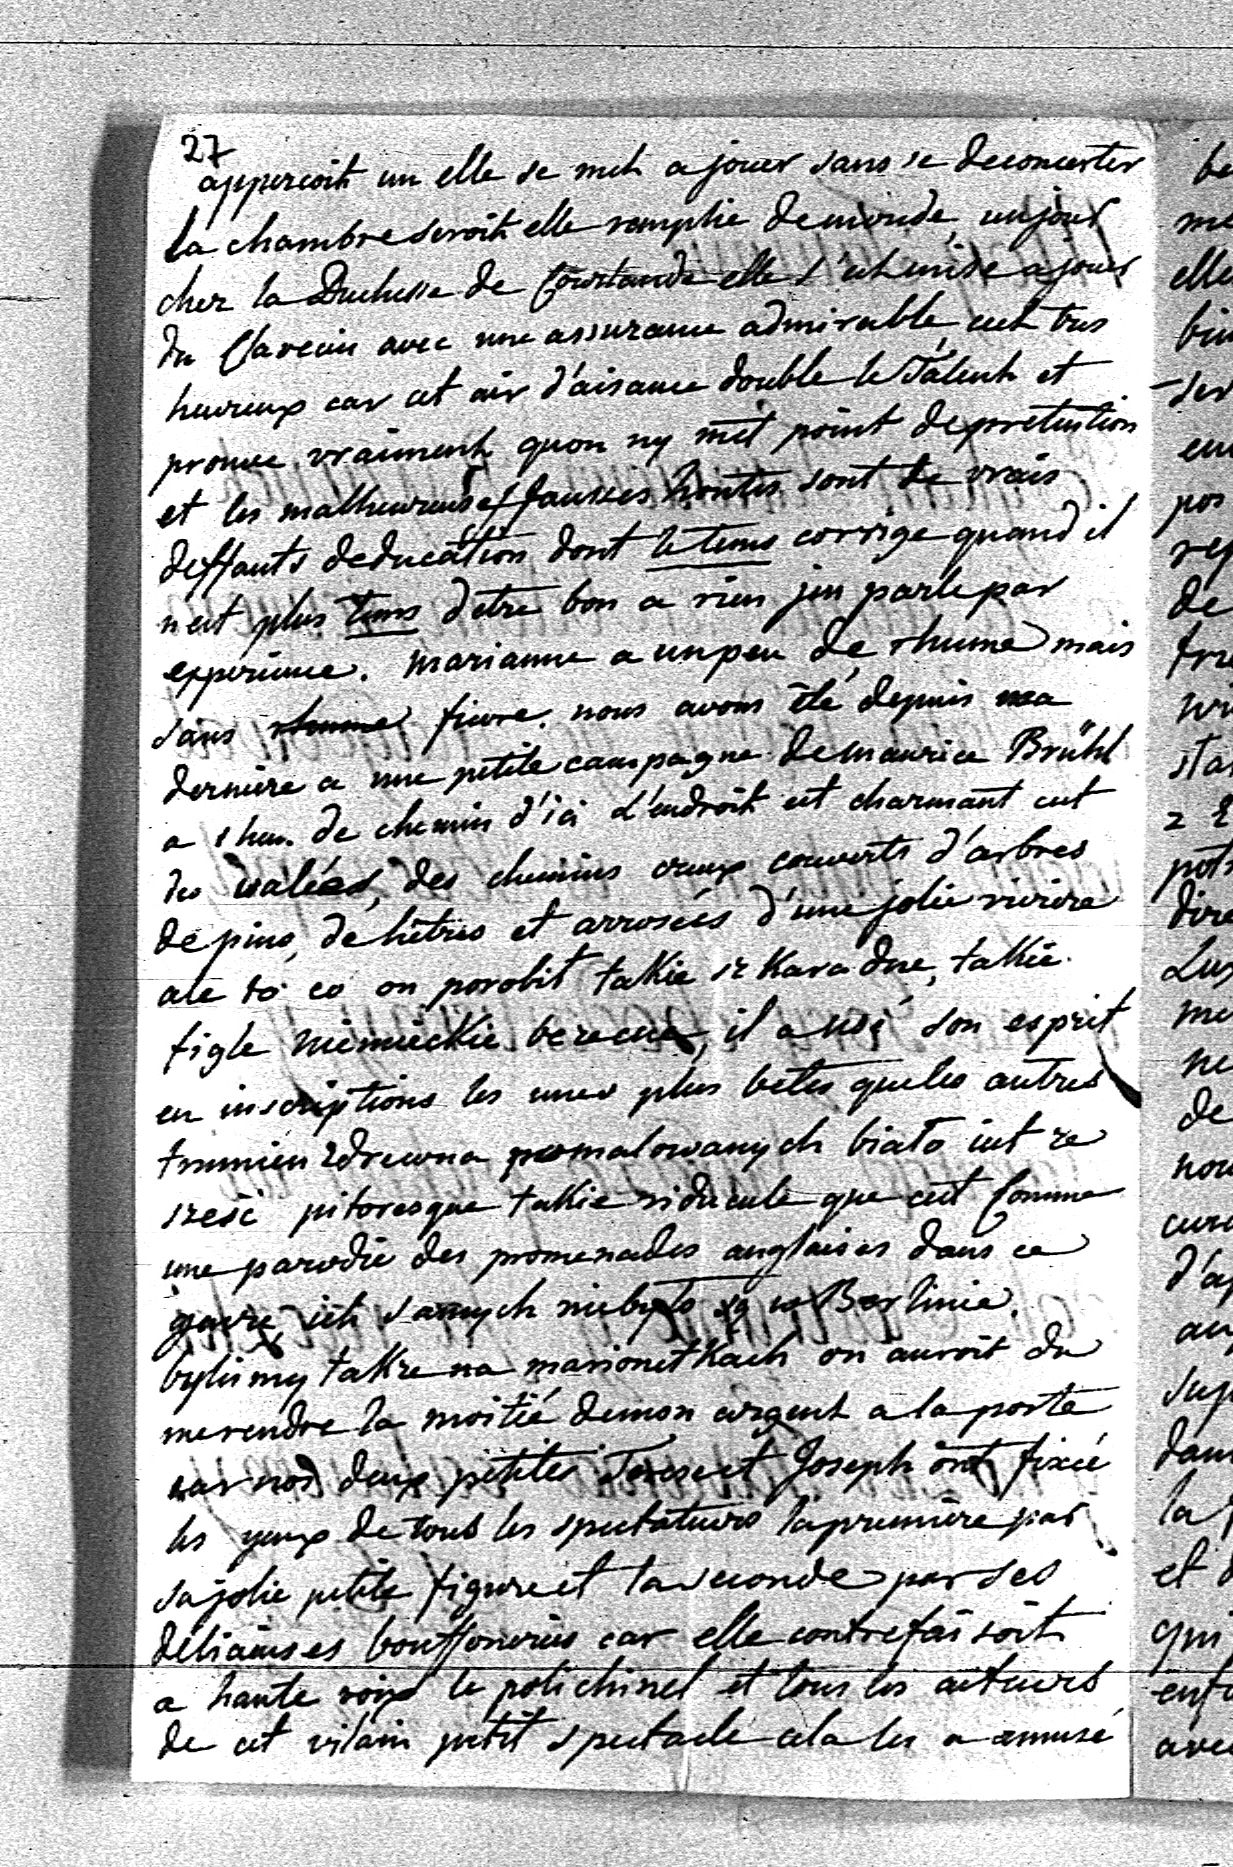 27
apperçoit un elle se met a jouer sans se deconcerter
la chambre seroit elle remplie de monde, un jour
chez la Duchesse de Courlande elle s'est mise a jouer
du Clavecin avec une assurance admirable, c'est tres
heureux car cet air d'aisance double le Talent et
prouve vraiment qu'on ny met point de pretention
et les malheureuses fausses hontes sont de vrais
deffauts deducation dont le tems corrige quand il
n'est plus tems d'etre bon a rien j'en parle par
experience. Marianne a un peu de rhume mais
sans rhume fievre. nous avons été depuis ma
derniere a une petite campagne de Maurice Brühl
a 1 heu. de chemin d'ici L'endroit est charmant c'est
des valées, des chemins creux couverts d'arbres
de pins, de hêtres et arrosées d'une jolie riviere
ale to co on porobił takie szkaradne, takie
figle niemieckie bezecne, il a usé son esprit
en inscriptions les unes plus betes que les autres
trumien z drewna pomalowanych biało iest ze
sześć pitoresque takie ridicule que c'est Comme
une parodie des promenades anglaises dans ce
genre, ich samych niebyło są w Berlinie.
byliśmy także na marionetkach on auroit du
me rendre la moitié de mon argent a la porte
car nos deux petites Therese et Joseph ont fixée
les yeux de tous les spectateurs la premiere par
sa jolie petite figure et la seconde par ses
déliciuses bouffoneries car elle contrefaisoit
a haute voix le polichinel et tous les acteurs
de cet vilain petit spectacle cela les a amusé